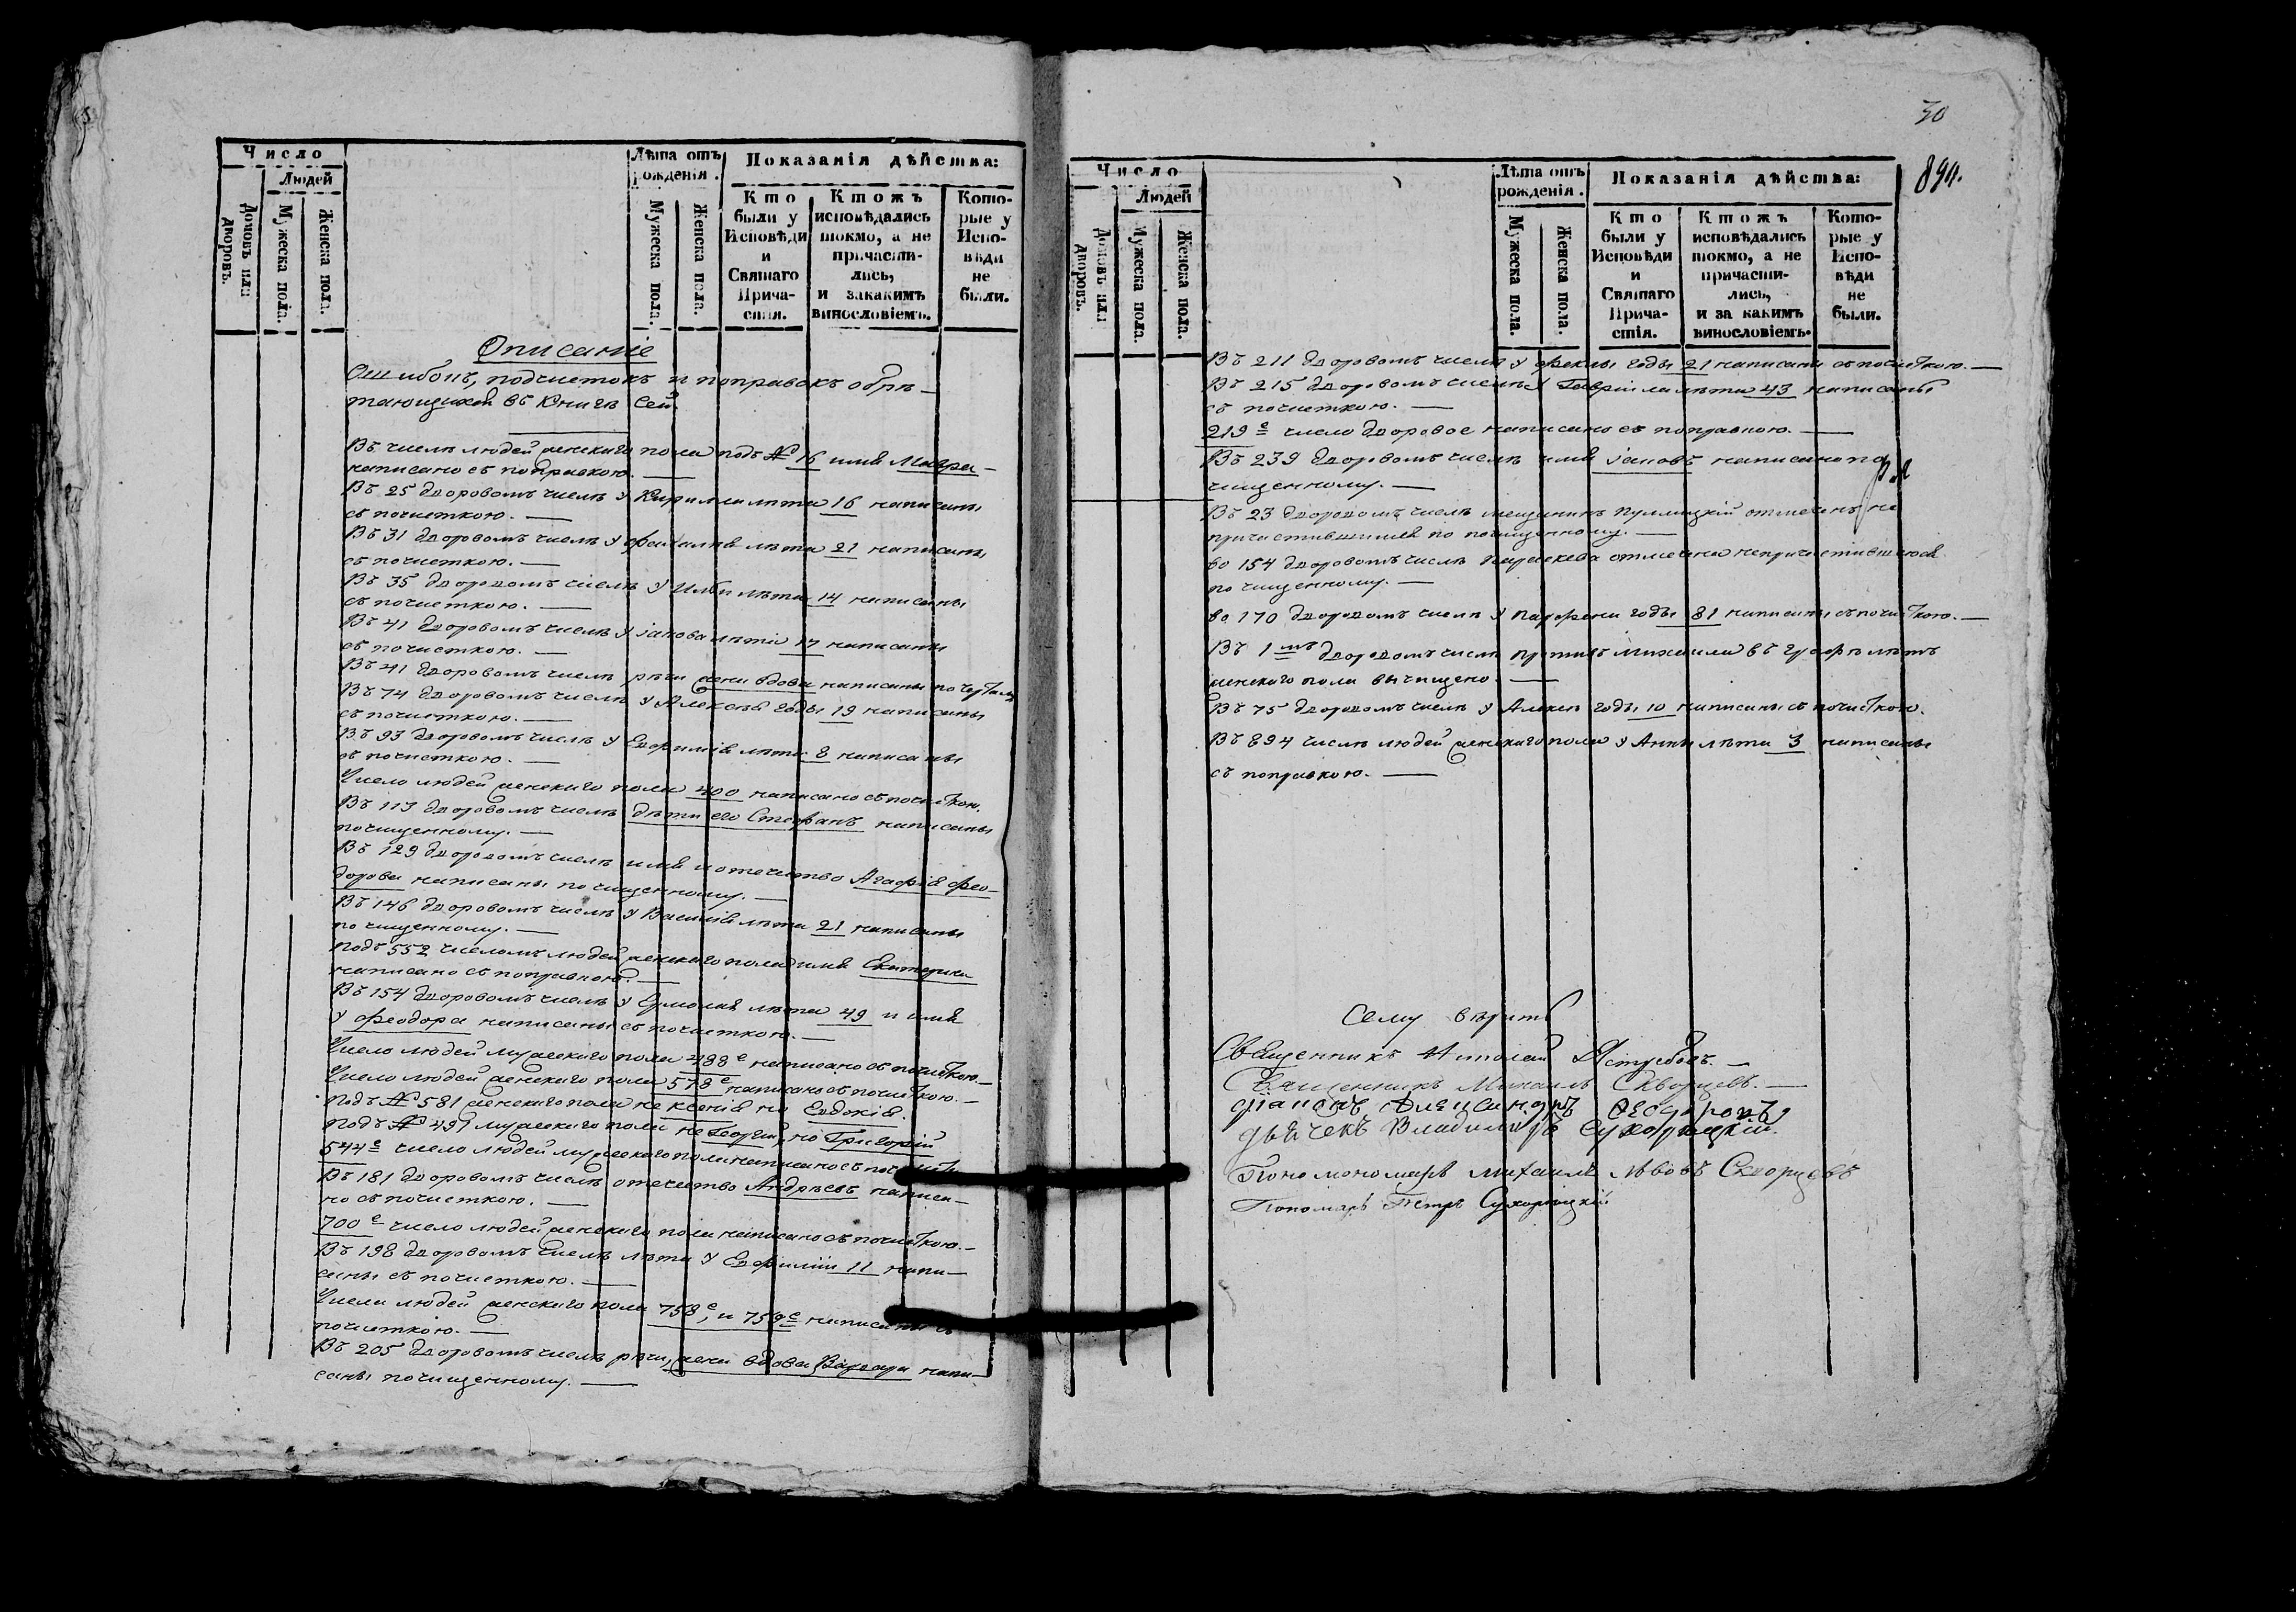 Число
Людей
Домовъ или дворовъ.
Мужеска пола.
Женска пола.
Лѣта отъ рожденія.
Мужеска пола.
Женска пола.
Показанія дѣйства:
Кто были у Исповѣди и Святаго Причастія.
Ктожъ исповѣдались токмо, а не причастились, и закакимъ винословіемъ.
Которые у Исповѣди не были.
Описаніе
Ошибокъ, подчистокъ и поправокъ обрѣ-
тающихся въ Книгѣ сей
Въ числѣ людей женскаго пола подъ № 16 имя Мавра
написано съ поправкою.
Въ 25 дворовомъ числѣ у Кирилла лѣта 16 написаны
съ почисткою.
Въ 31 дворовомъ числѣ у лѣта 21 написаны
съ почисткою.
Въ 35 дворовомъ числѣ у лѣта 14 написаны
съ почисткою.
Въ 41 дворовомъ числѣ у Іакова лѣта 17 написаны
съ почисткою.
Въ 41 дворовомъ числѣ рѣчи жена вдова написаны по
Въ 74 дворовомъ числѣ у Алексѣя годы 19 написаны
съ почисткою.
Въ 93 дворовомъ числѣ у Евфимія лѣта 8 написаны
съ почисткою.
Число людей женскаго пола 400 написано съ почисткою.
Въ 113 дворовомъ числѣ дѣти его Стефанъ написаны
почищенному.
Въ 129 дворовомъ числѣ имя и отечество Агафія Фео-
дорова написаны почищенному.
Въ 146 дворовомъ числѣ у Василія лѣта 21 написаны
почищенному.
Подъ 552 числомъ людей женскаго пола имя Екатерина
написано съ поправкою.
Въ 154 дворовомъ числѣ у Ермолая лѣта 49 и имя
у Феодора написаны съ почисткою.
Число людей мужескаго пола 488е написано съ почисткою.
Число людей женскаго пола 578е написано съ почисткою.
Подъ № 581 женскаго пола не Ксенія но Евдокія.
Подъ № 497 мужескаго пола не Георгій, но Григорій
544е число людей мужескаго пола написано съ
Въ 181 дворовомъ числѣ отечество Андреевъ написа-
но съ почисткою.
700е число людей женскаго пола написано съ почисткою.
Въ 198 дворовомъ числѣ лѣта у Евфиміи 11 напи-
саны съ почисткою.
Числа людей женскаго пола 758е, и 759е написаны съ
почисткою.
Въ 205 дворовомъ числѣ рѣчи, жена вдова Варвара напи-
саны почищенному.
30
894.
Число
Людей
Домовъ или дворовъ.
Мужеска пола.
Женска пола.
Лѣта отъ рожденія.
Мужеска пола.
Женска пола.
Показанія дѣйства:
Кто были у Исповѣди и Святаго Причастія.
Ктожъ исповѣдались токмо, а не причастились, и за какимъ винословіемъ.
Которые у Исповѣди не были.
Въ 211 дворовомъ числѣ у Феклы годы 21 написаны съ почисткою.
Въ 215 дворовомъ числѣ у Гавріила лѣта 43 написаны
съ почисткою.
219е число дворовое написано съ поправкою.
Въ 239 дворовомъ числѣ имя Іаковъ написано по
чищенному.
Въ 23 дворовомъ числѣ мещанинъ отмеченъ не
причастившимся по почищенному.
Во 154 дворовомъ числѣ Параскева отмечена непричастившеюся
по чищенному.
Во 170 дворовомъ числѣ у Парфена годы 81 написаны съ почисткою.
Въ 1мъ дворовомъ числѣ противъ Михаила въ графѣ лѣтъ
женскаго пола вычищено.
Въ 75 дворовомъ числѣ у Алексѣ годы 10 написаны съ почисткою.
Въ 894 числѣ людей женскаго пола у Анны лѣта 3 написаны
съ поправкою.
Сему вѣрить
Священникъ Ястребовъ.
Священникъ Михаилъ Скворцевъ.
Діаконъ Александръ
Дьячекъ Владимиръ Сухорицкій.
Пономономарь Михаилъ Львовъ Скворцевъ
Пономарь Петръ Сухорицкій